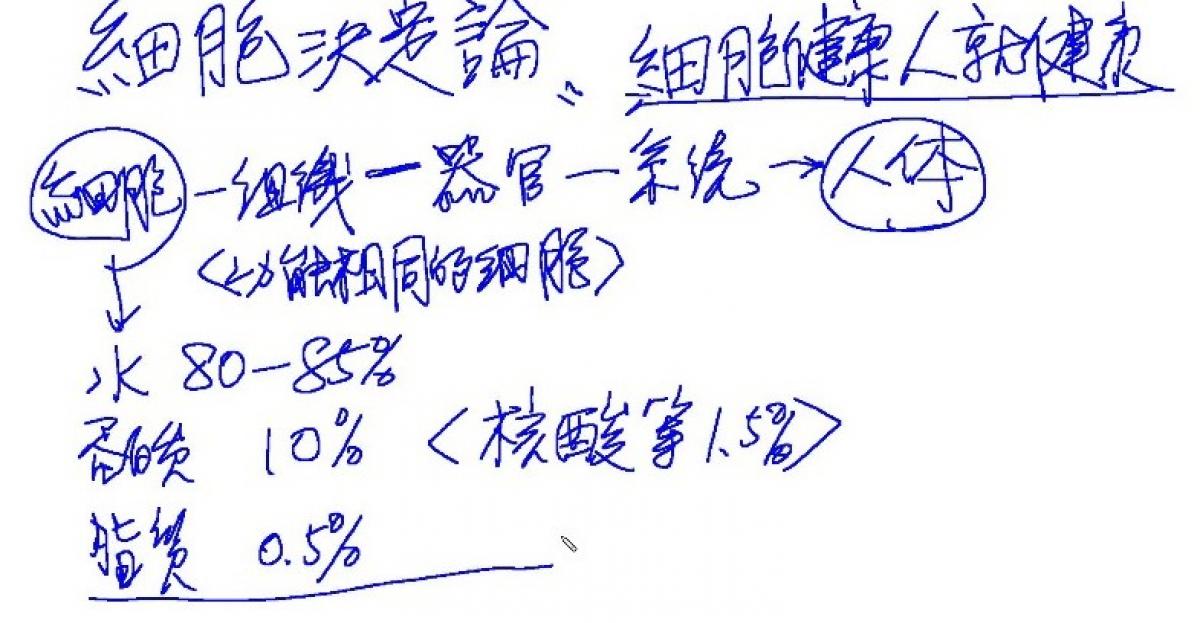 細胞決定論 細胞健康人就健康
細胞—組織—器官—系统→人体
<功能相同的细胞>
水 80-85%
蛋白质 10% <核酸等1.5%>
脂質 0.5%